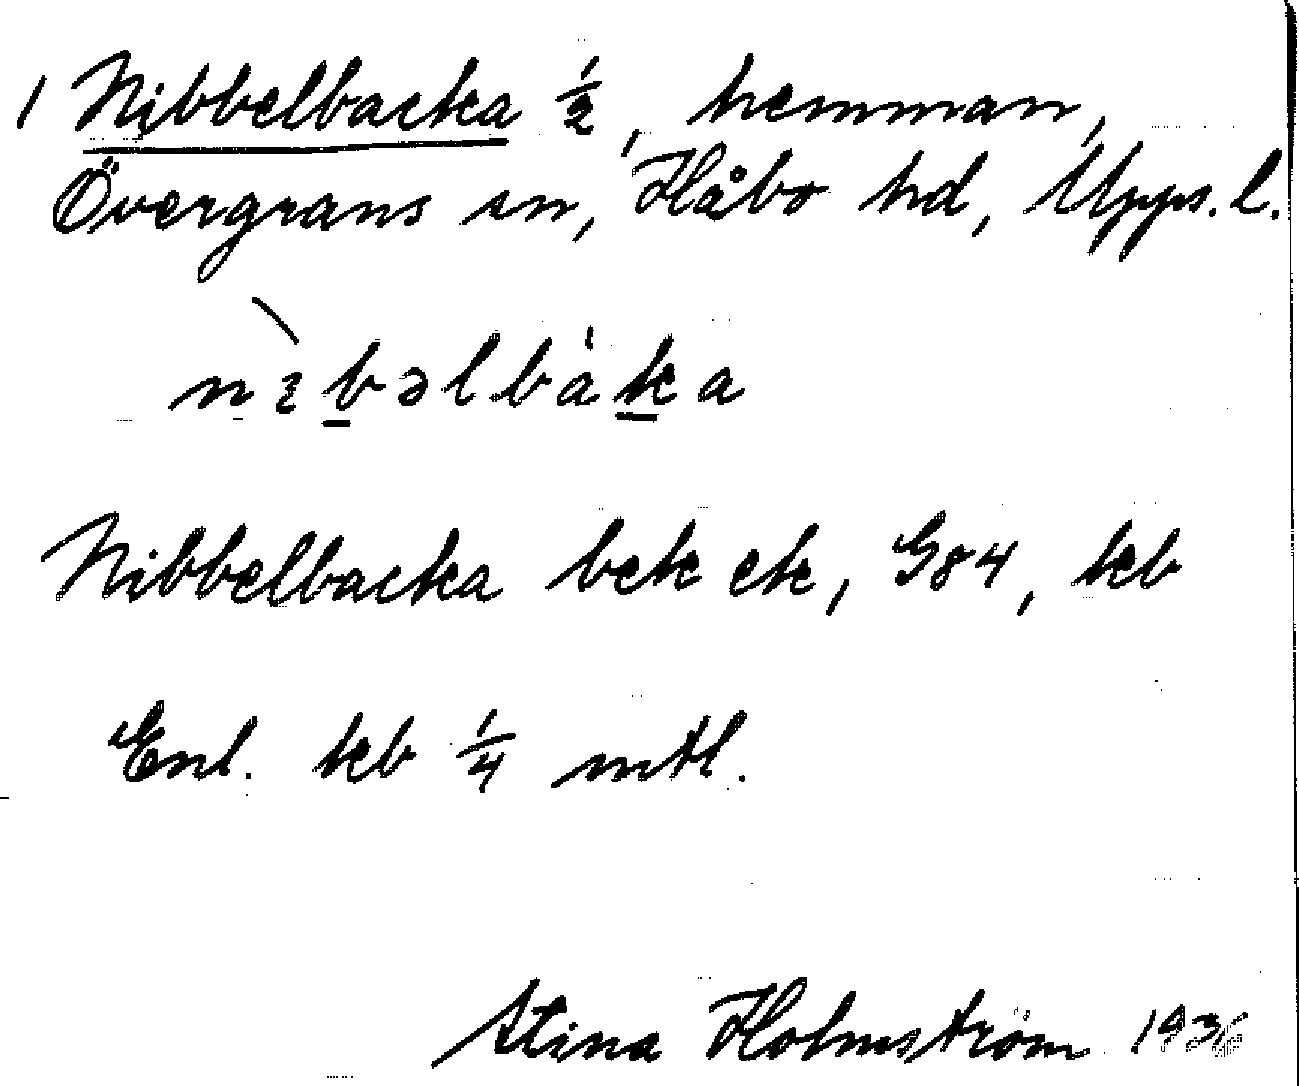 1 Nibbelbacka 1/2, hemman,
Övergrans sn, Håbo hd, Upps. l.
Nibbelbacka bek ek, G84, keb
Enl. keb 1/4 mtl.
Stina Holmström 1936